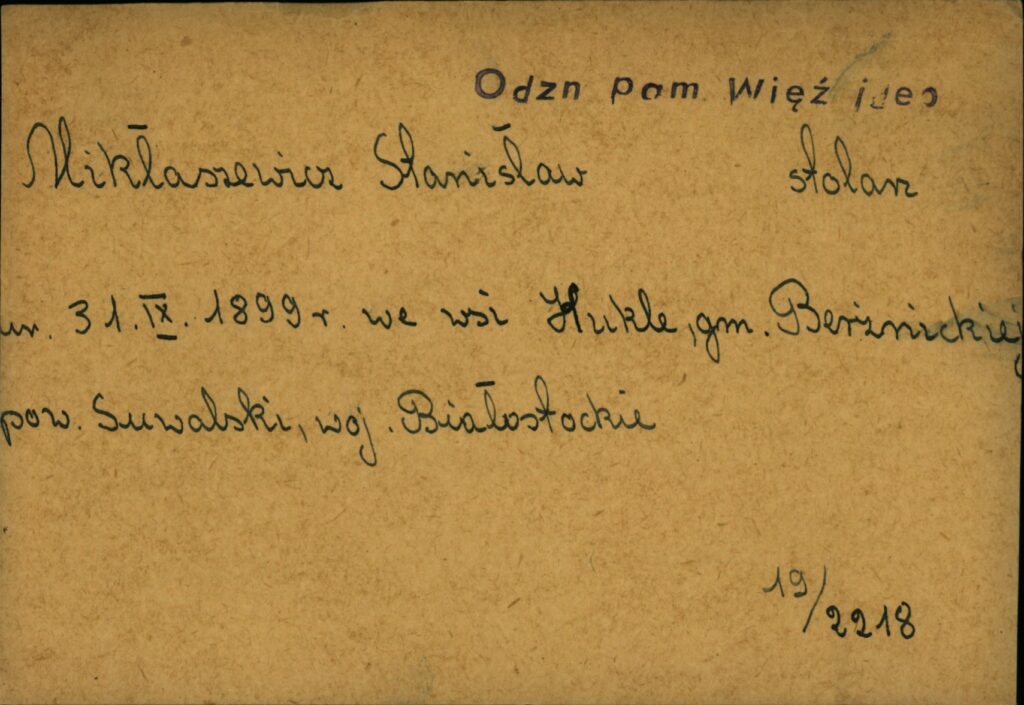 Odzn pam Więź ideo
Mikłaszewicz Stanisław stolarz
ur. 31.IX. 1899 r. we wsi Hukle, gm. Berżnickiej
pow. Suwalski, woj. Białostockie
19/2218